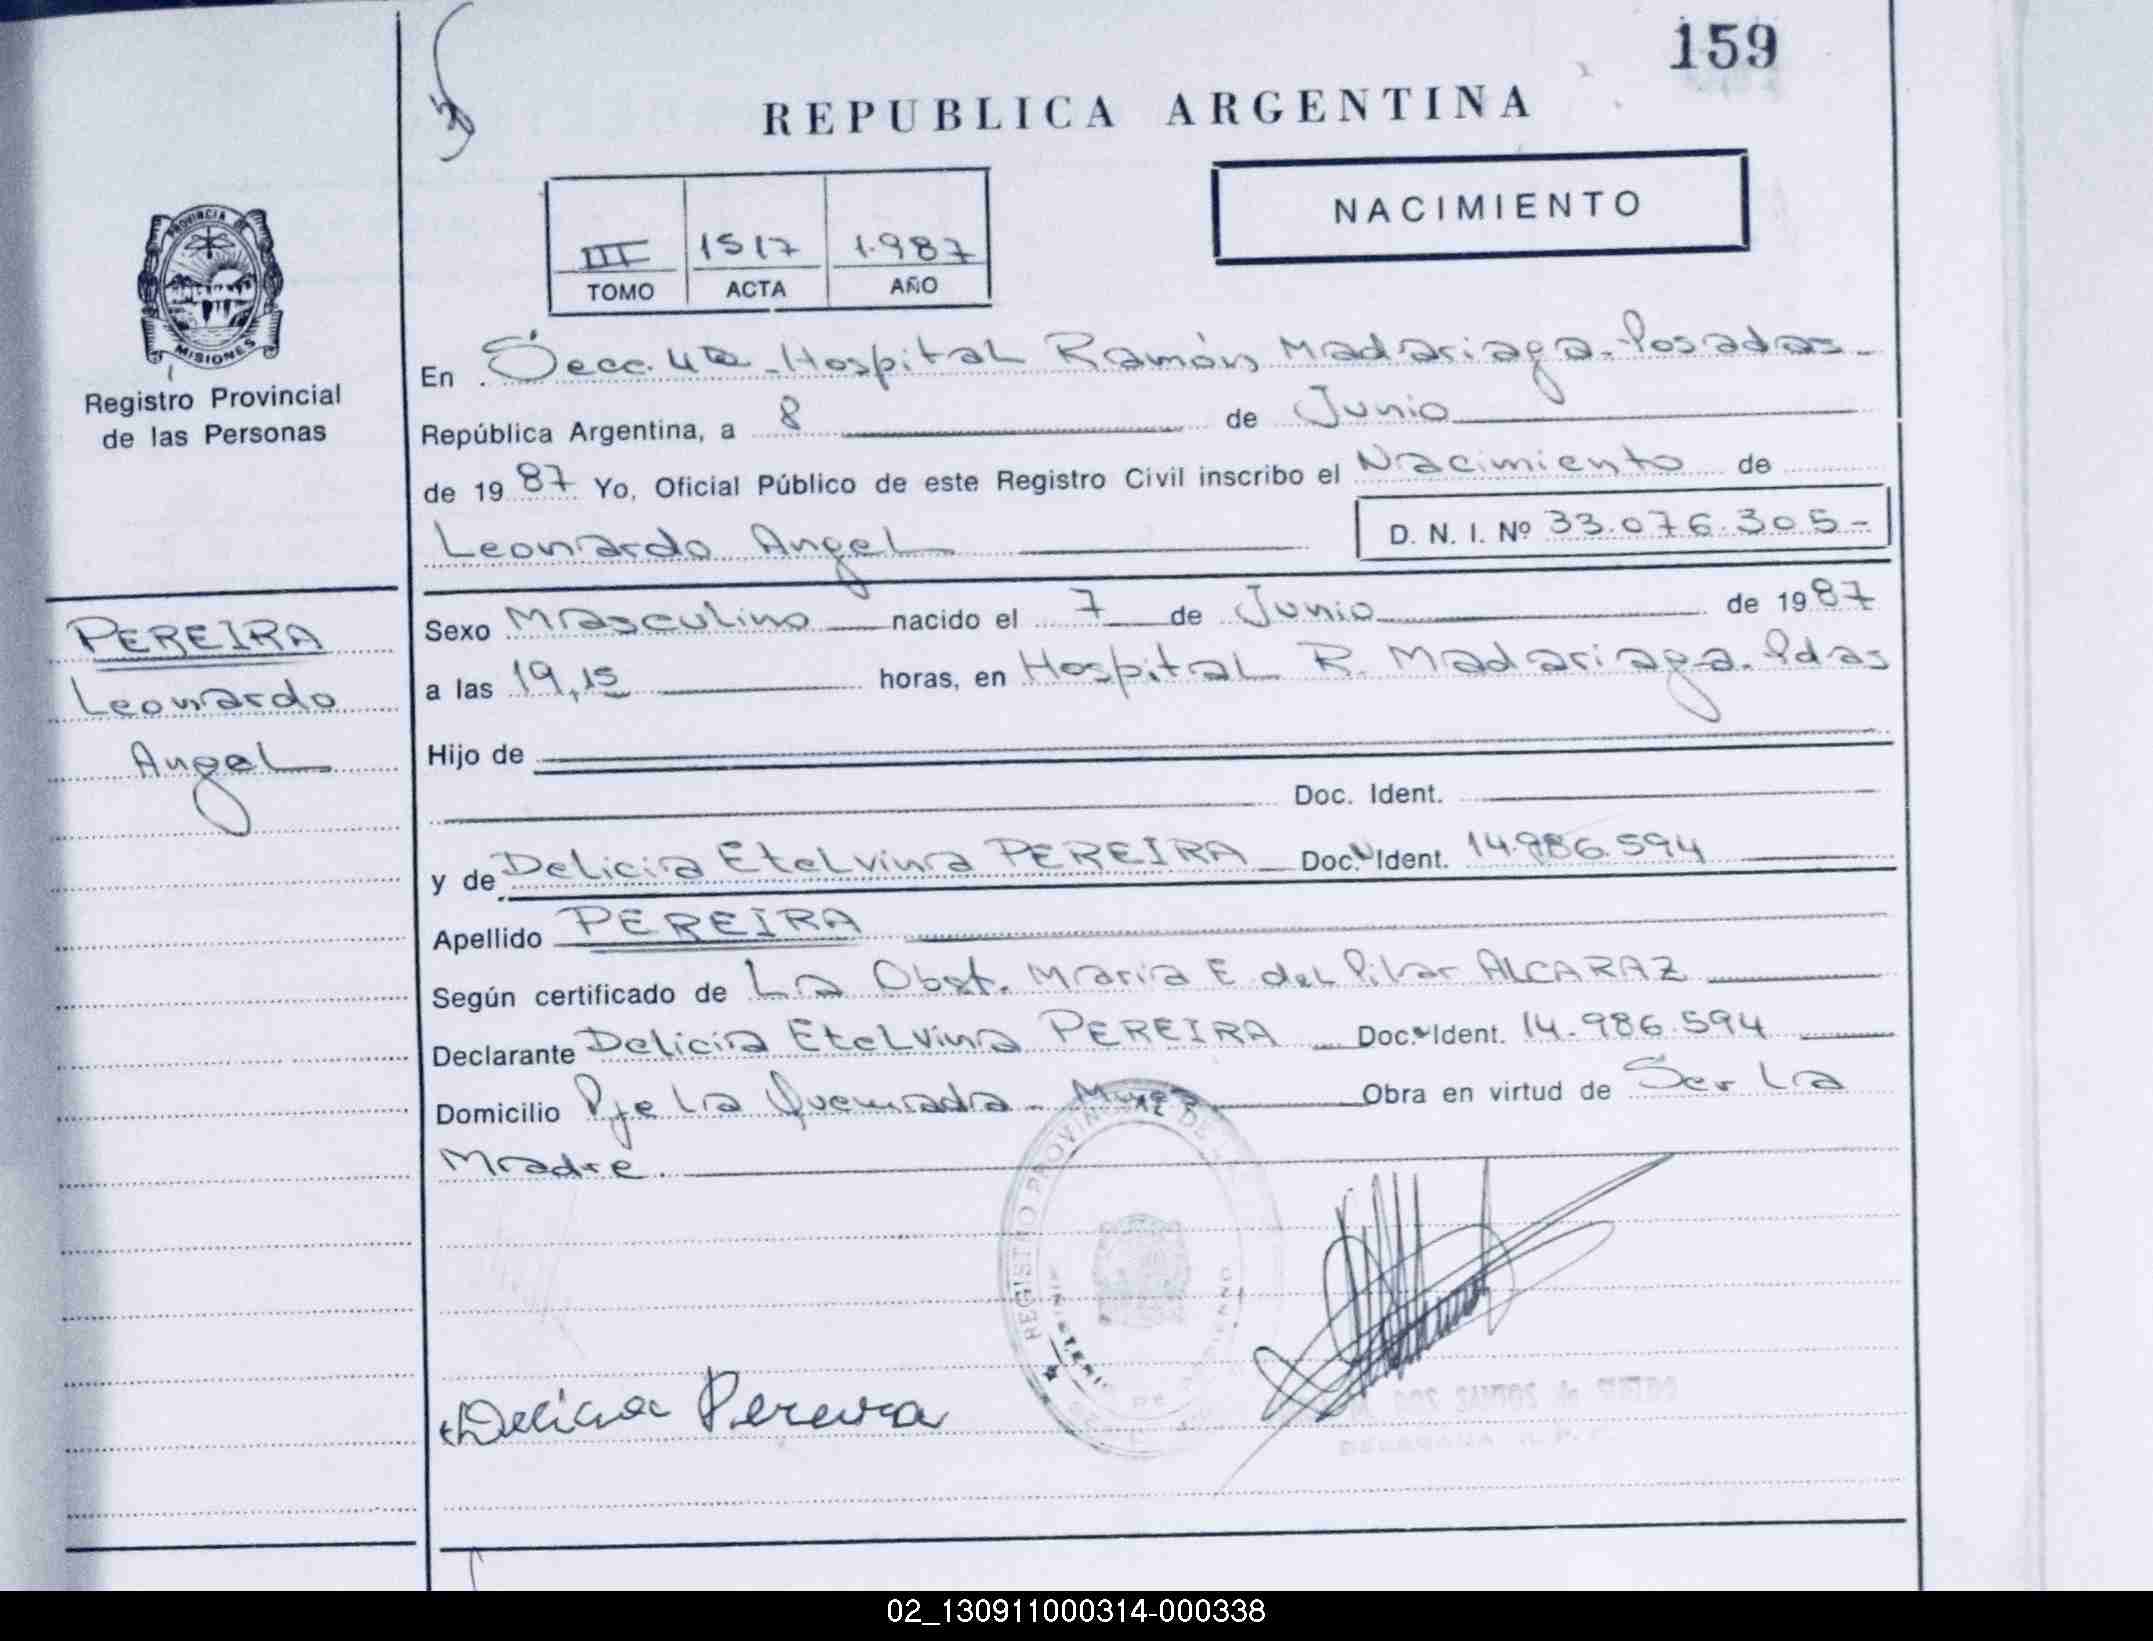 159
REPUBLICA ARGENTINA
NACIMIENTO
III 1517 1.987
TOMO ACTA AÑO
PROVINCIA DE
MISIONES
Registro Provincial
de las Personas
En Secc. 4ta - Hospital Ramón Madariaga. Posadas -
República Argentina, a 8 de Junio
de 1987 Yo, Oficial Público de este Registro Civil inscribo el Nacimiento de
Leonardo Angel D. N. I. Nº 33.076.305-
PEREIRA
Leonardo
Angel
Sexo Masculino nacido el 7 de Junio de 1987
a las 19,15 horas, en Hospital R. Madariaga. Pdas
Hijo de
Doc. Ident.
y de Delicia Etelvina PEREIRA Doc. Ident. 14.986.594
Apellido PEREIRA
Según certificado de La Obst. Maria E del Pilar ALCARAZ
Declarante Delicia Etelvina PEREIRA Doc. Ident. 14.986.594
Domicilio Pje La Quemada - Obra en virtud de Ser La
Madre.
REGISTRO PROVINCIAL DE
Delicia Pereira
DOS SANTOS de
02_130911000314-000338